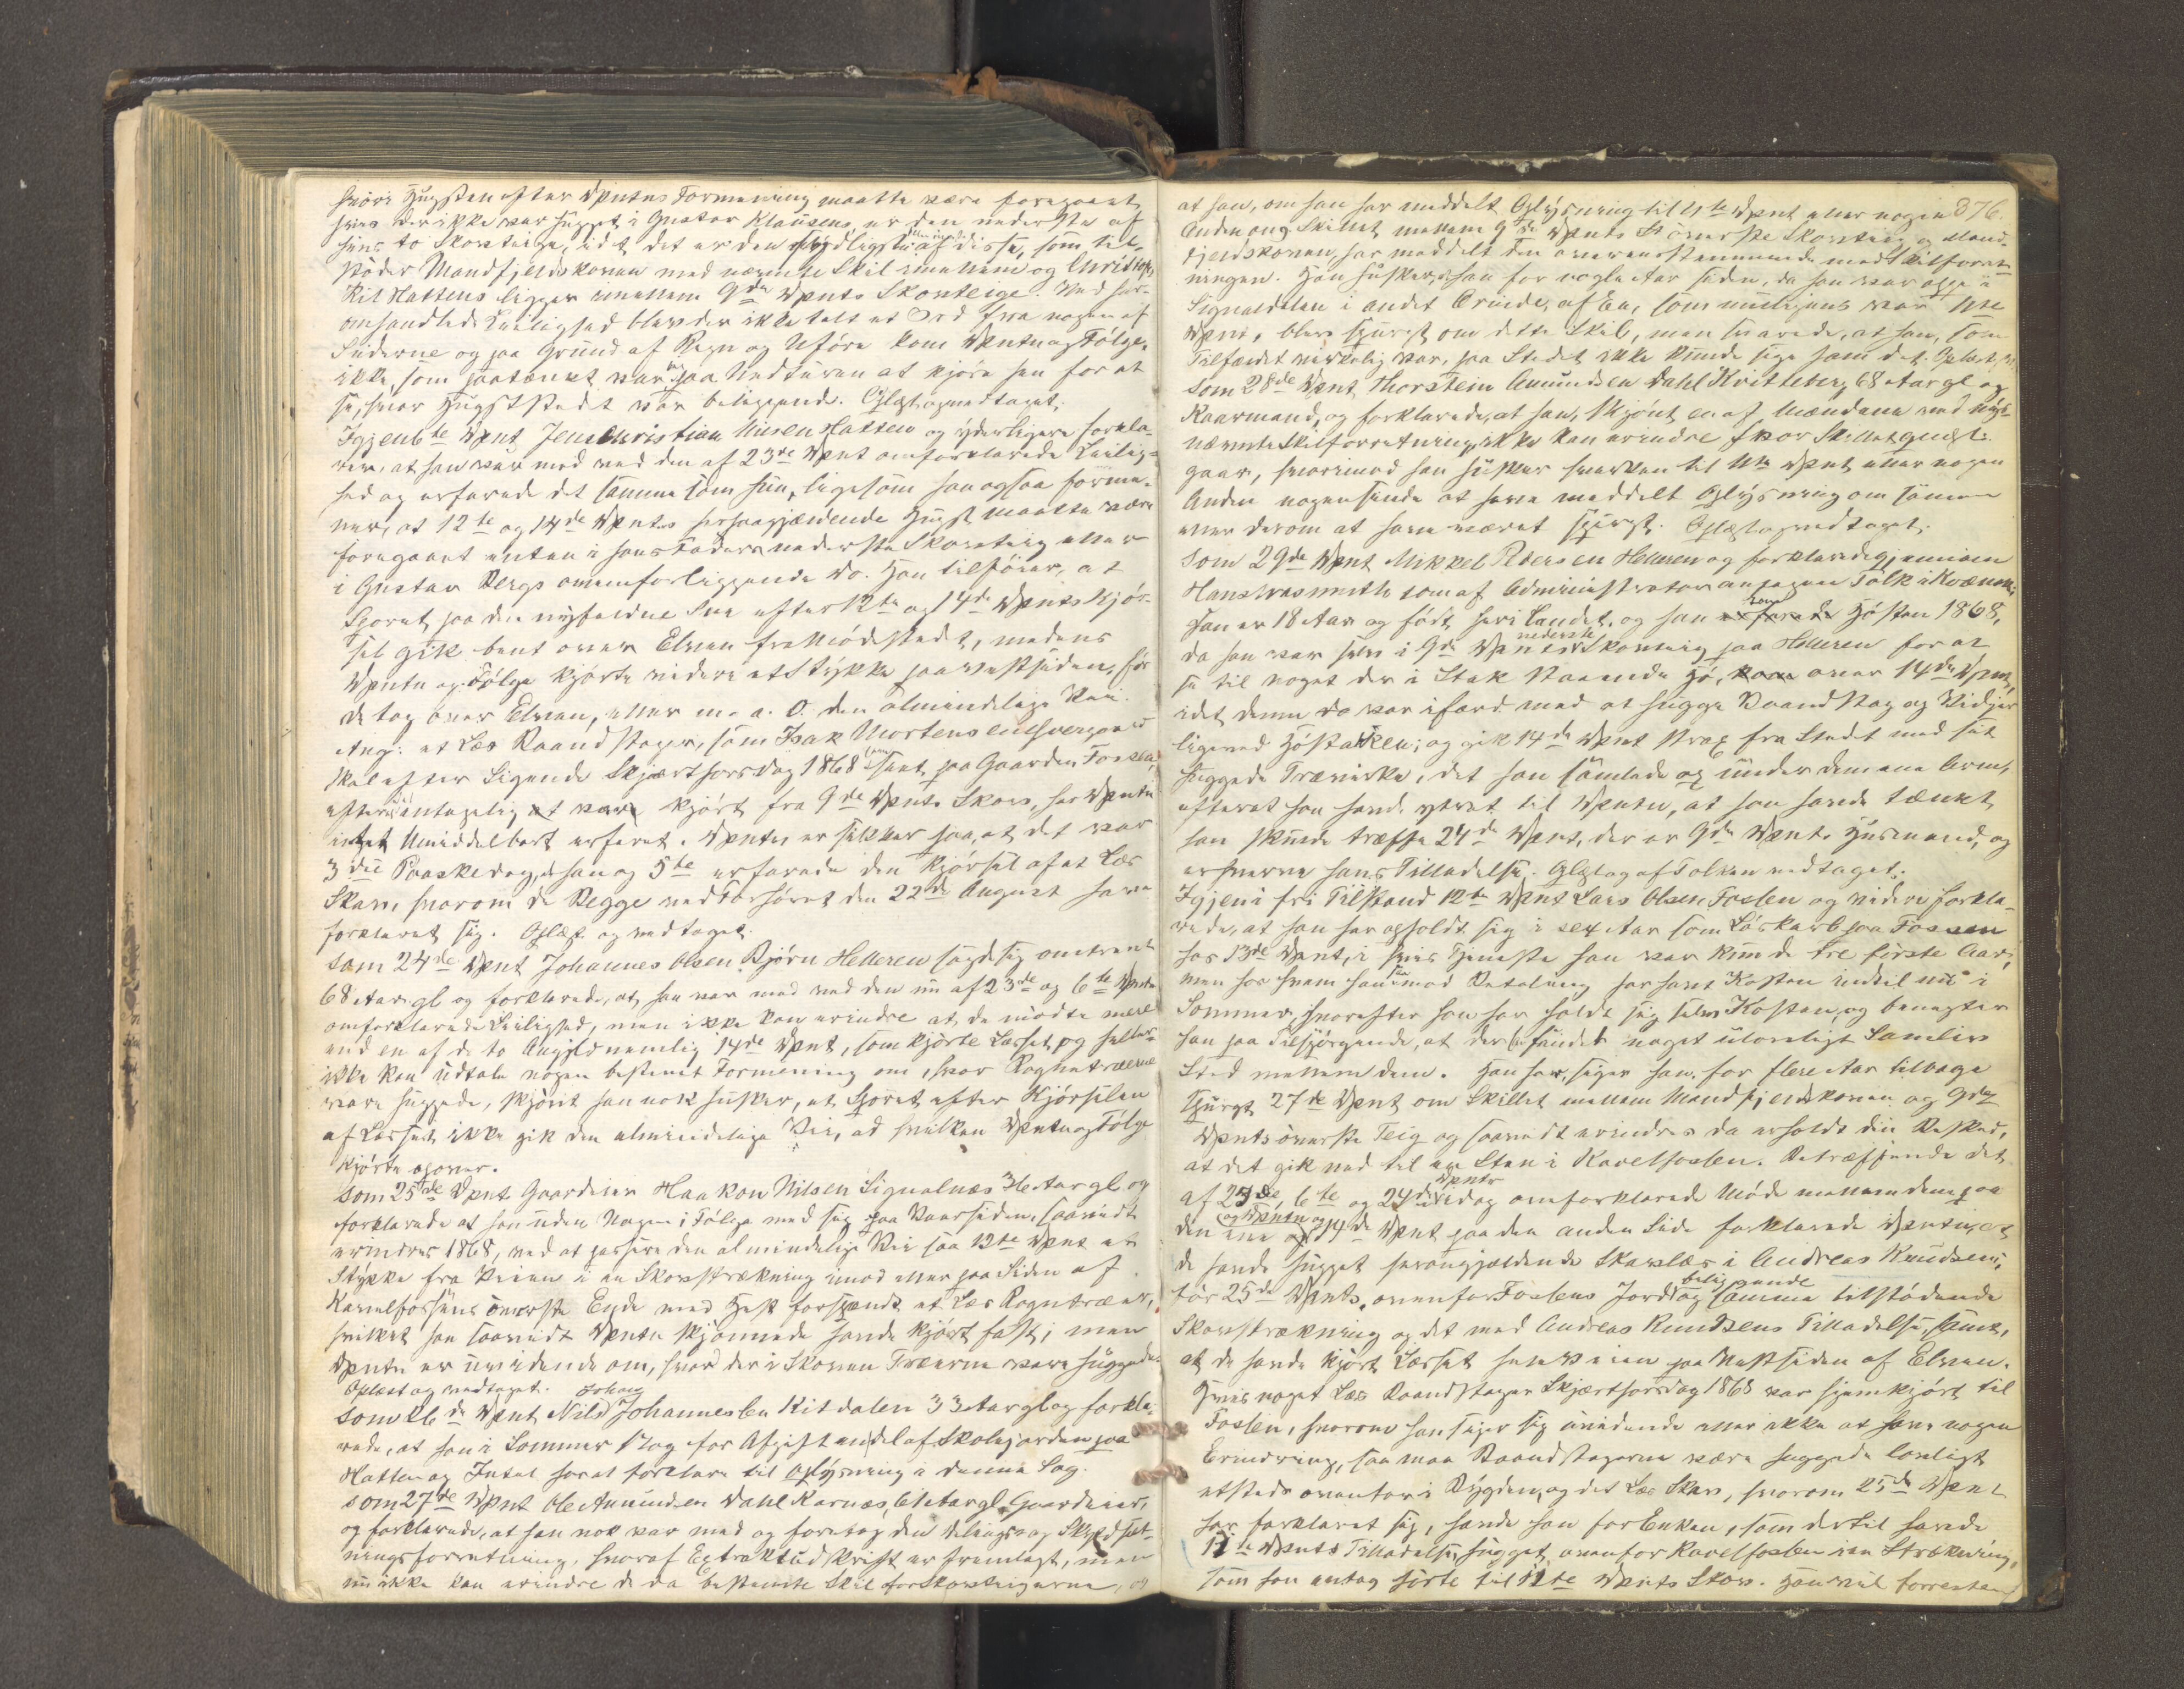 hvori Hugsten efter Vpntns Formening maatte være foregaaet
hvis der ikke var hugget i Gustav Klausens, er den nederste af
hans to Skovteige, idet det er den sydligste af disse, som til-
støder Mandfjeldskoven med nævnte Skil imellem og Christoph
Kil Hattens ligger imellem 9de Vpnts Skovteige. Ved her-
omhandlede Leilighed blev der ikke talt et Ord fra nogen af
Siderne og paa Grund af Regn og Uføre kom Vpntn og Følge
ikke, som paatænkt var, paa Nedturen at kjøre hen for at
se, hvor Hugststedet var beliggende. Oplæst og vedtaget.
Igjen 6te Vpnt Jens Christian Nilsen Hatten og yderligere forkla-
rer, at han var med ved den af 23de Vpnt omforklarede Leilig-
hed og erfarede det samme som hun, ligesom han ogsaa forme-
ner, at 12te og 14de Vpnts herhaandgjældende Hugst maatte være
foregaaet enten i hans Faders nederste Skovteig eller
i Gustav Bergs ovenforliggende do. Han tilføier, at
Sporet paa den nyfaldne Sne efter 12te og 14de Vpnts Kjør-
sel gik bent over Elven fra Mødestedet, medens
Vpntn og Følge kjørte videre et Stykke paa Vestsiden, før
de tog over Elven, eller m. a. O. den almindelige Vei.
Ang. et Læs Raandstager, som Isak Mortensen
skal efter Sigende Skjærthorsdag 1868 seet paa Gaarden Fossen,
eftersom antagelig kjørt fra 9de Vpnts Skov, har Vpntn
intet Umiddelbart erfaret. Vpntn er sikker paa, at det var
3die Paaskedag, han og 5te erfarede den Kjørsel af et Læs
Skav, hvorom de Begge ved Forhøret den 22de August have
forklaret sig. Oplæst og vedtaget.
Som 24de Vpnt Johannes Olsen Bjørn Helleren sagde sig omtrent
68 Aar gl. og forklarede, at han var med ved den nu af 23de og 6te Vpntr
omforklarede Leilighed, men ikke kan erindre at de mødte mere
end en af de to Angjeldne, nemlig 14de Vpnt, som kjørte Læsset, og heller
ikke kan udtale nogen bestemt Formening om, hvor Rognetræerne
vare huggede, skjønt han nok husker, at Sporet efter Kjørselen
af Læsset ikke gik den almindelige Vei, ad hvilken Vpntn og Følge
kjørte opover.
Som 25de Vpnt Gaardeier Haakon Nilsen Signalnæs 36 Aar gl. og
forklarede at han uden Nogen i Følge med sig paa Vaarsiden, saavidt
erindres 1868, ved at passere den almindelige Vei saa 12te Vpnt et
Stykke fra Veien i en Skovstrækning imod eller paa Siden af
Kavelfossens øverste Ende med Hest forspændt et Læs Rogntræer,
hvilket han saavidt Vpntn skjønnede havde kjørt fast; men
Vpntn er uvidende om, hvor der i Skoven Træerne vare huggede.
Oplæst og vedtaget. Johan
Som 26de Vpnt Nils Johannessen Kitdalen 33 Aar gl. og forkla-
rede, at han i Sommer slog for Afgift endel af Skolejorden paa
Hatten og Intet havt forklare til Oplysning i denne Sag.
Som 27de Vpnt Ole Amundsen Dahl Karnæs, 61 Aar gl. Gaardeier,
og forklarede, at han nok var med og foretog den Delings- og Skyldsæt-
ningsforretning, hvoraf Extraktudskrift er fremlagt, men
nu ikke kan erindre de da bestemte Skil for Skovteigerne, og
376.
at han, om han har meddelt Oplysning til 11te Vpnt eller nogen
Anden ang. Skillet mellem 9de Vpnts øverste Skovteig og Mand-
fjeldskoven, har meddelt den overensstemmende med Skilforret-
ningen. Han husker, at han for nogle Aar siden, da han var oppe i
Signaldalen i andet Ærinde, af En, som muligens var 11te
Vpnt, blev spurgt om dette Skil, men svarede, at han, som
Tilfældet virkelig var, paa Stedet ikke kunde sige ham det. Oplæst, v.
Som 28de Vpnt Thorstein Amundsen Dahl Kvitteberg 68 Aar gl. og
Kaarmand, og forklarede, at han, skjønt en af Mændene ved nys-
nævnte Skilforretning, ikke kan erindre hvor Skillet gaar,
gaar, hvorimod han husker hverken til 11te Vpnt eller nogen
Anden nogensinde at have meddelt Oplysning om samme
eller derom at have været spurgt. Oplæst og vedtaget.
Som 29de Vpnt Mikkel Pedersen Helleren og forklarede gjennem
Hans Wasmuth som af Administrator antagen Tolk i Kvænsk,
han er 18 Aar og født her i Landet, og han kom Høsten 1868,
da han var selv i 9de Vpnts nederste Skovteig paa Helleren for at
se til noget der i Stak staaende Hø, over 14de Vpnt,
idet denne da var ifærd med at hugge Raandstag og Vidjer
ligeved Høstakken; og gik 14de Vpnt strax fra Stedet med sit
huggede Trævirke, det han samlede og under den ene Arm,
efterat han havde ytret til Vpntn, at han havde tænkt
han skulde træffe 24de Vpnt, der er 9de Vpnts Husmand, og
erhverve hans Tilladelse. Oplæst og af Tolken vedtaget.
Igjen i fri Tilstand 12te Vpnt Lars Olsen Fossen og videre forkla-
rede, at han har opholdt sig i sex Aar som Løskarl paa Fossen
hos 13de Vpnt, i hvis Tjeneste han var kun de tre første Aar,
men hos hvem han mod Betaling har havt Kosten indtil nu i
Sommer, hvorefter han har holdt sig selv Kosten, og benægter
han paa Tilspørgende, at der har fundet noget utilladeligt Samliv
Sted mellem dem. Han har, siger han, for flere Aar tilbage
spurgt 27de Vpnt om Skillet mellem Mandfjeldskoven og 9de
Vpnts øverste Teig og saavidt erindres da erholdt den Besked,
at det gik ned til en Sten i Kavelfossen. Betræffende det
af 23de, 6te og 24de Vpntr idag omforklarede Møde mellem dem paa
den ene og Vpntn og 14de Vpnt paa den anden Side forklarede Vpntn, at
de havde hugget heromgjældende Skavlæs i Andreas Knudsens,
før 25de Vpnts, ovenfor Fossens Jord beliggende og samme tilstødende
Skovstrækning og det med Andreas Knudsens Tilladelse, samt,
at de havde kjørt Læsset henover Veien paa Vestsiden af Elven.
Hvis noget Læs Raandstager Skjærthorsdag 1868 var hjemkjørt til
Fossen, hvorom han siger sig uvidende eller ikke at have nogen
Erindring, saa maa Raandstagerne være huggede lovligt
etsteds ovenfor i Bygden, og det Læs Skav, hvorom 25de Vpnt
har forklaret sig, havde han for Enken, som dertil havde
11te Vpnts Tilladelse, hugget ovenfor Kavelfossen i en Strækning,
som han antog hørte til 11te Vpnts Skov. Han vil forresten